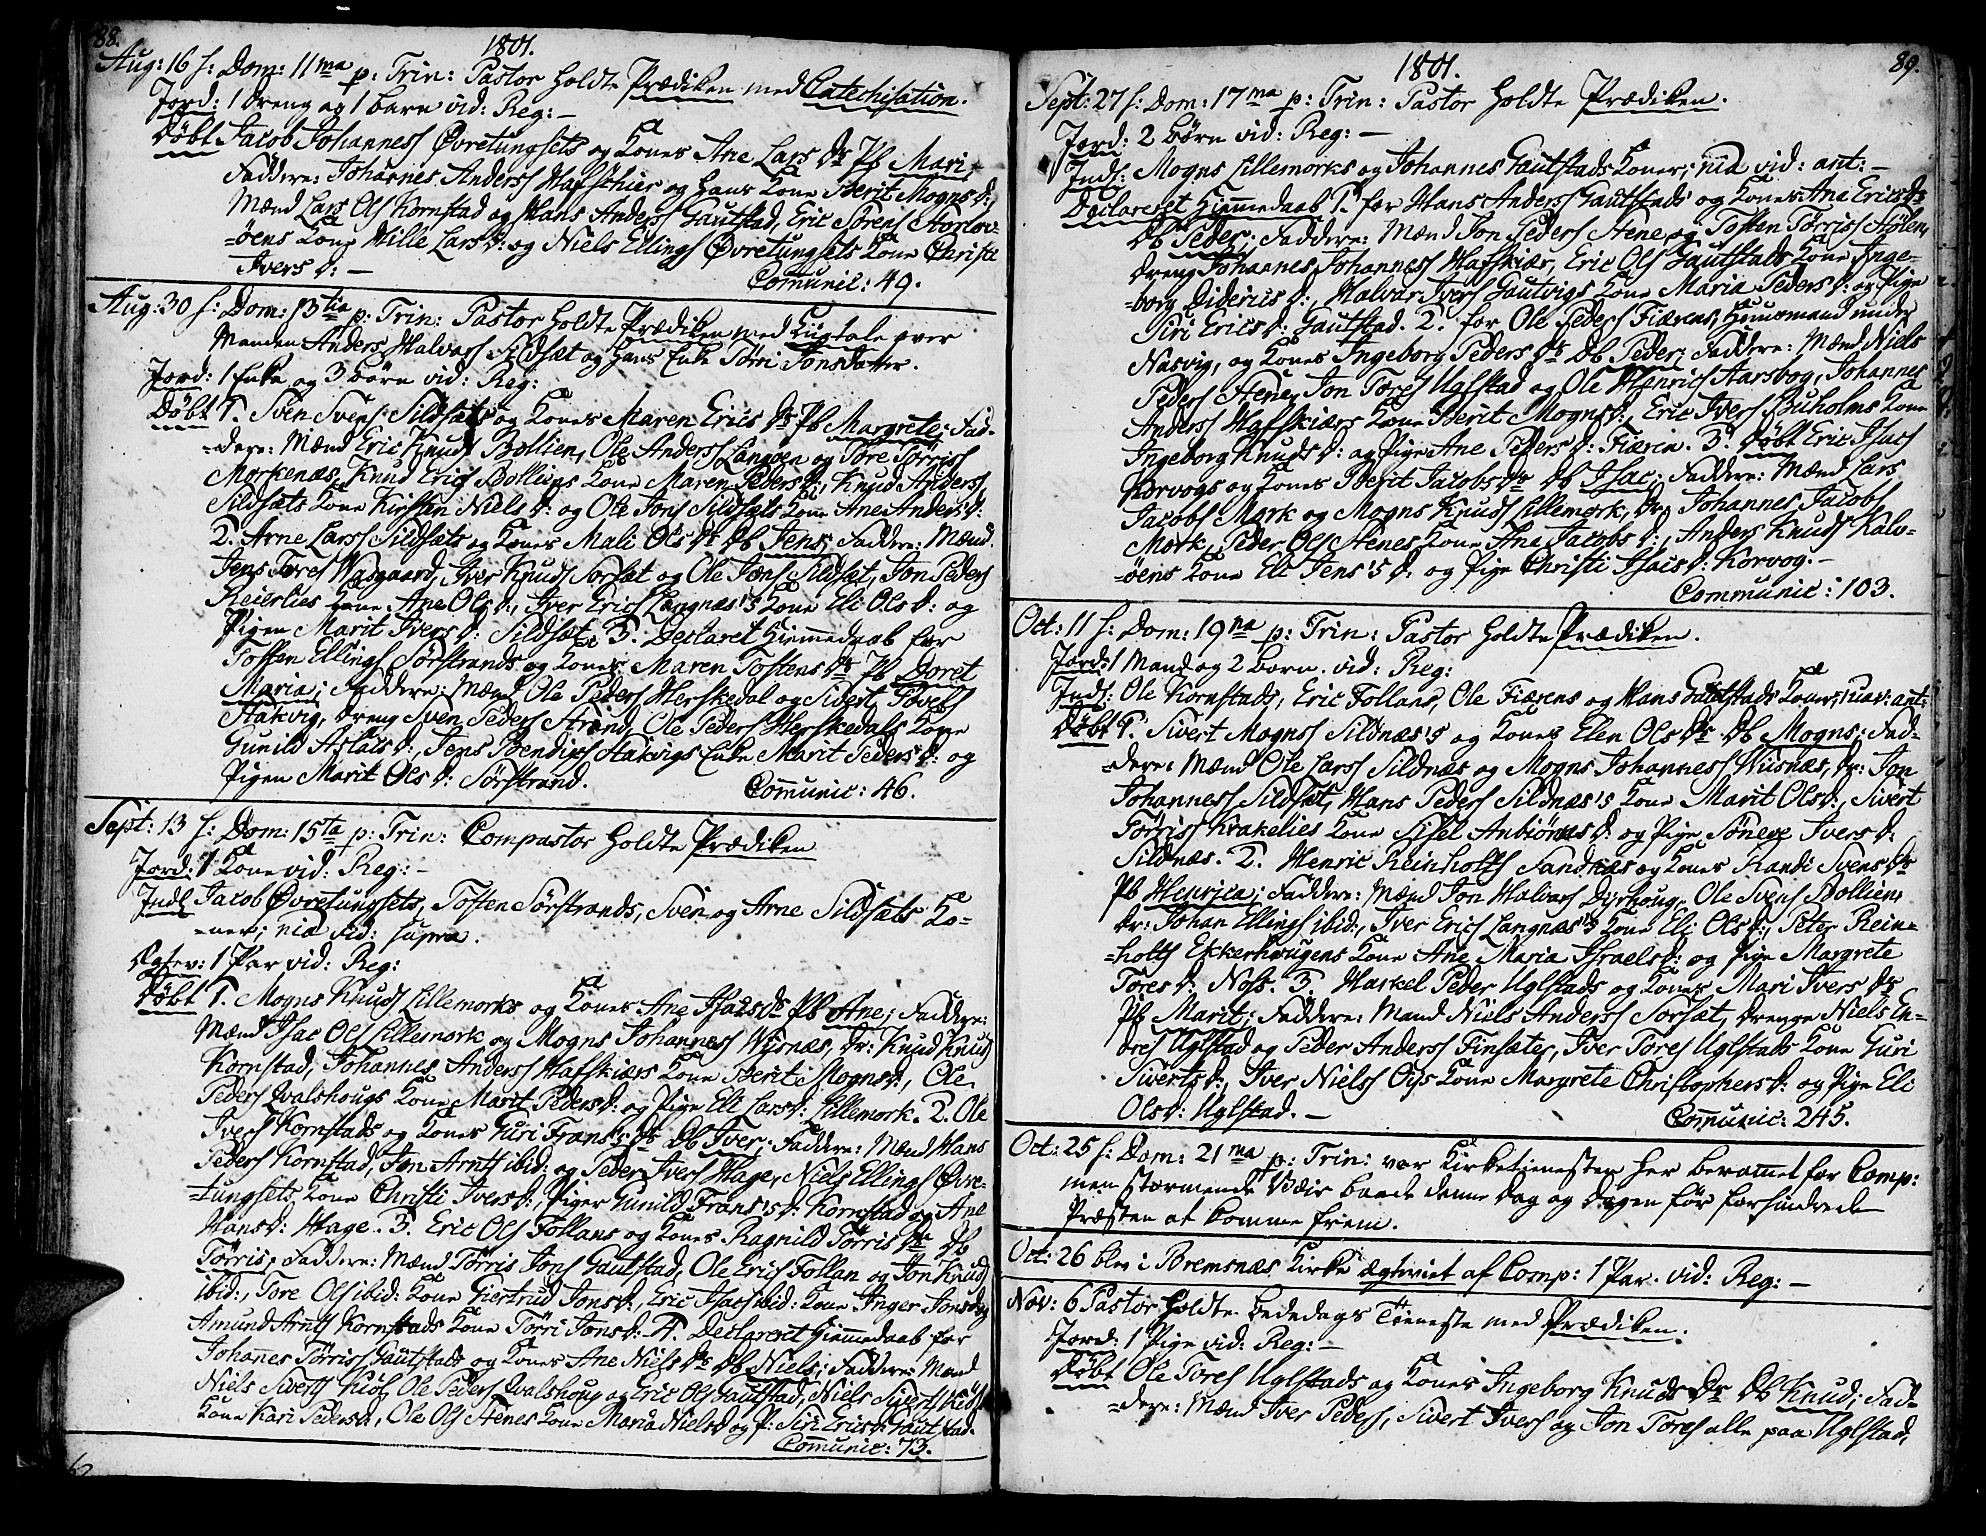 88.
1801.
Aug: 16 f: Dom: 11ma p: Trin: Pastor holdte Prædiken med Catechisation.
Jord: 1 dreng og 1 barn vid: Reg: —
Døbt Jacob Johanness Øvretungsets og Kones Ane Lars Dr PB Mari,
Faddere: Johannes Anderss Hafskier og hans Kone Berit Mogns D:,
Mænd Lars Ols Kornstad og Hans Anderss Gautstad, Eric Sørens Storlov-
=øens Kone Mille Lars D: og Niels Ellings Øvretungsets Kone Christi
Ivers D: —
Comunic: 49.
Aug: 30 f: Dom: 13tia p: Trin: Pastor holdte Prædiken med Liigtale over
Manden Anders Halvars Sildsæt og hans Enke Sørri Jonsdatter.
Jord: 1 Enke og 3 børn vid: Reg:
Døbt 1. Sven Svens Sildsæts og Kones Maren Erics Dr PB Margrete; Fad-
=dere: Mænd Eric Knuds Bollien, Ole Anderss Langøen og Tore Tørriss
Morkenæs, Knud Erics Bolliens Kone Maren Peders D:, Knud Anderss
Sildsæts Kone Kirsten Niels D: og Ole Jons Sildsæts Kone Ane Anders D:
2. Arne Larss Sildsæts og Kones Mali Ols Dr DB Jens; Faddere: Mænd
Jens Tores Waagaard, Iver Knuds Sorsæt og Ole Jens Sildsæt, Jon Peders
Reierlies Kone Ane Ols D:, Iver Erics Langnæs's Kone Eli Ols D: og
Pigen Marit Ivers D: Sildsæt. 3. Declaret Hiemmedaab for
Tosten Ellings Sørstrands og Kones Maren Tostens Dr PB Doret
Maria; Faddere: Mænd Ole Peders Herskedal og Sivert Tøvels
Stakvig, dreng Sven Peders Strand, Ole Peders Herskedals Kone
Gunild Aslacs D:, Jens Bendixs Stakvigs Enke Marit Peders D: og
Pigen Marit Ols D: Sørstrand.
Comunic: 46.
Sept: 13 f: Dom: 15ta p: Trin: Compastor holdte Prædiken
Jord: 1 Kone vid: Reg: —
Indl Jacob Øvretungsets, Tosten Sørstrands, Sven og Arne Sildsæts Ko-
=ner; nia vid: supra.
Cofev: 1 Par vid: Reg:
Døbt 1. Mogns Knuds Lillemorks og Kones Ane Isacs Dr PB Ane; Faddere:
Mænd Isac Ols Lillemork og Mogns Johanness Wisnæs, Dr: Knud Knuds
Kornstad, Johannes Anderss Hafskiærs Kone Berit Mogns D:, Ole
Peders Qvalshougs Kone Marit Peders D: og Pige Eli Lars D: Lillemork. 2. Ole
Ivers Kornstads og Kones Guri Frans's Dr DB Iver; Faddere: Mænd Hans
Peders Kornstad, Jon Arnts ibid: og Peder Ivers Hage, Niels Ellings Øvre-
=tungsets Kone Christi Ivers D:, Piger Gunild Frans's D: Kornstad og Ane
Hans D: Hage. 3. Eric Ols Follans og Kones Ragnild Tørris Dr DB
Tørris; Faddere: Mænd Tørris Jons Gautstad, Ole Erics Follan og Jon Knuds
ibid:, Tore Ols ibid: Kone Giertrud Jons D:, Eric Isacs ibid: Kone Inger Jons D: og
Amund Arnts Kornstads Kone Tørri Jons D: 4. Declareret Hiemmedaab for
Johannes Tørriss Gautstads og Kones Ane Niels Dr DB Niels; Faddere: Mænd
Niels Siverts Kiøl, Ole Peders Qvalshoug og Eric Ols Gautstad, Niels Siverts Kiøls
Kone Kari Peders D:, Ole Ols Stenes Kone Maria Niels D: og P: Siri Erics D: Gautstad.
Comunic: 73.
89.
1801.
Sept: 27 f: Dom: 17ma p: Trin: Pastor holdte Prædiken.
Jord: 2 børn vid: Reg: —
Indl: Mogns Lillemorks og Johannes Gautstads Koner; nia vid: ant: —
Declareret Hiemmedaab 1. for Hans Anderss Gautstads og Kones Ane Erics Dr
DB Peder; Faddere: Mænd Jon Peders Stene og Tosten Tørriss Hølen,
dreng Johannes Johanness Hafskiær, Eric Ols Gautstads Kone Inge-
=borg Dideriks D:, Halvar Ivers Gautvigs Kone Maria Peders D: og Pige
Siri Erics D: Gautstad. 2. for Ole Peders Fiærens, Huusmand under
Nasvig, og Kones Ingeborg Peders Dr DB Peder; Faddere: Mænd Niels
Peders Stene, Jon Tores Uglstad og Ole Henrics Aarsbog, Johannes
Anderss Hafskiærs Kone Berit Mogns D:, Eric Ivers Buholms Kone
Ingeborg Knuds D: og Pige Ane Peders D: Fiæren. 3. Døbt Eric Isacs
Korvogs og Kones Berit Jacobs Dr DB Isac; Faddere: Mænd Lars
Jacobs Mork og Mogns Knuds Lillemork, Dr: Johannes Jacobs
Mork, Peder Ols Stenes Kone Ane Jacobs D:, Anders Knuds Kalv-
=øens Kone Eli Jens's D: og Pige Christi Isacs D: Korvog. —
Communic: 103.
Oct: 11 f: Dom: 19na p: Trin: Pastor holdte Prædiken.
Jord: 1 Mand og 2 børn vid: Reg:
Indl: Ole Kornstads, Eric Follans, Ole Fiærens og Hans Gautstads Koner, nia v: ant:
Døbt 1. Sivert Mogns Sildnæs's og Kones Elen Ols Dr DB Mogns; Fad-
=dere: Mænd Ole Larss Sildnæs og Mogns Johanness Wiisnæs, Dr: Jon
Johanness Sildsæt, Hans Peders Sildnæs's Kone Marit Ols D:, Sivert
Tørriss Krakelies Kone Sisel Anbiørns D: og Pige Sønneve Ivers D:
Sildnæs. 2. Henric Reinholts Sandnæs og Kones Randi Svens Dr
PB Henrica; Faddere: Mænd Jon Halvars Dyrhoug, Ole Svens Bollien,
Dr: Johan Ellings ibid:, Iver Erics Langnæs's Kone Eli Ols D:, Peter Rein-
=holts Ekkerhougens Kone Ane Maria Israels D: og Pige Margrete
Tores D: Nøss. 3. Harkel Peder Uglstads og Kones Mari Ivers Dr
PB Marit; Faddere: Mænd Niels Anderss Sorsæt, drenge Niels En-
dres Uglstad og Peder Anderss Finsæter, Iver Tores Uglstads Kone Guri
Siverts D:, Iver Nielss Øies Kone Margrete Christophers D: og Pige Eli
Ols D: Uglstad. —
Comunic: 245.
Oct: 25 f: Dom: 21ma p: Trin: var Kirketienesten her berammet for Comp:
men stormende Veir baade denne dag og dagen før forhindrede
Præsten at komme frem.
Oct: 26 blev i Bremsnæs Kirke ægteviet af Comp: 1 Par. vid: Reg: —
Nov: 6 Pastor holdte bededags Tieneste med Prædiken.
Jord: 1 Pige vid: Reg: —
Døbt Ole Tores Uglstads og Kones Ingeborg Knuds Dr DB Knud; Fad-
=dere: Mænd Iver Peders, Sivert Ivers og Jon Tores alle paa Uglstad,